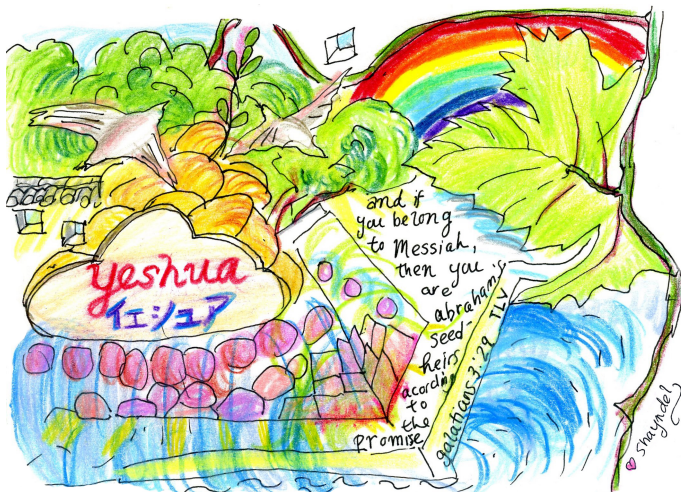 yeshua
イエシュア
and if
you belong
to Messiah,
then you
are
abraham's
seed-
heirs
acording
to
the
Promise
galatians 3:29 TLV
Shayndel